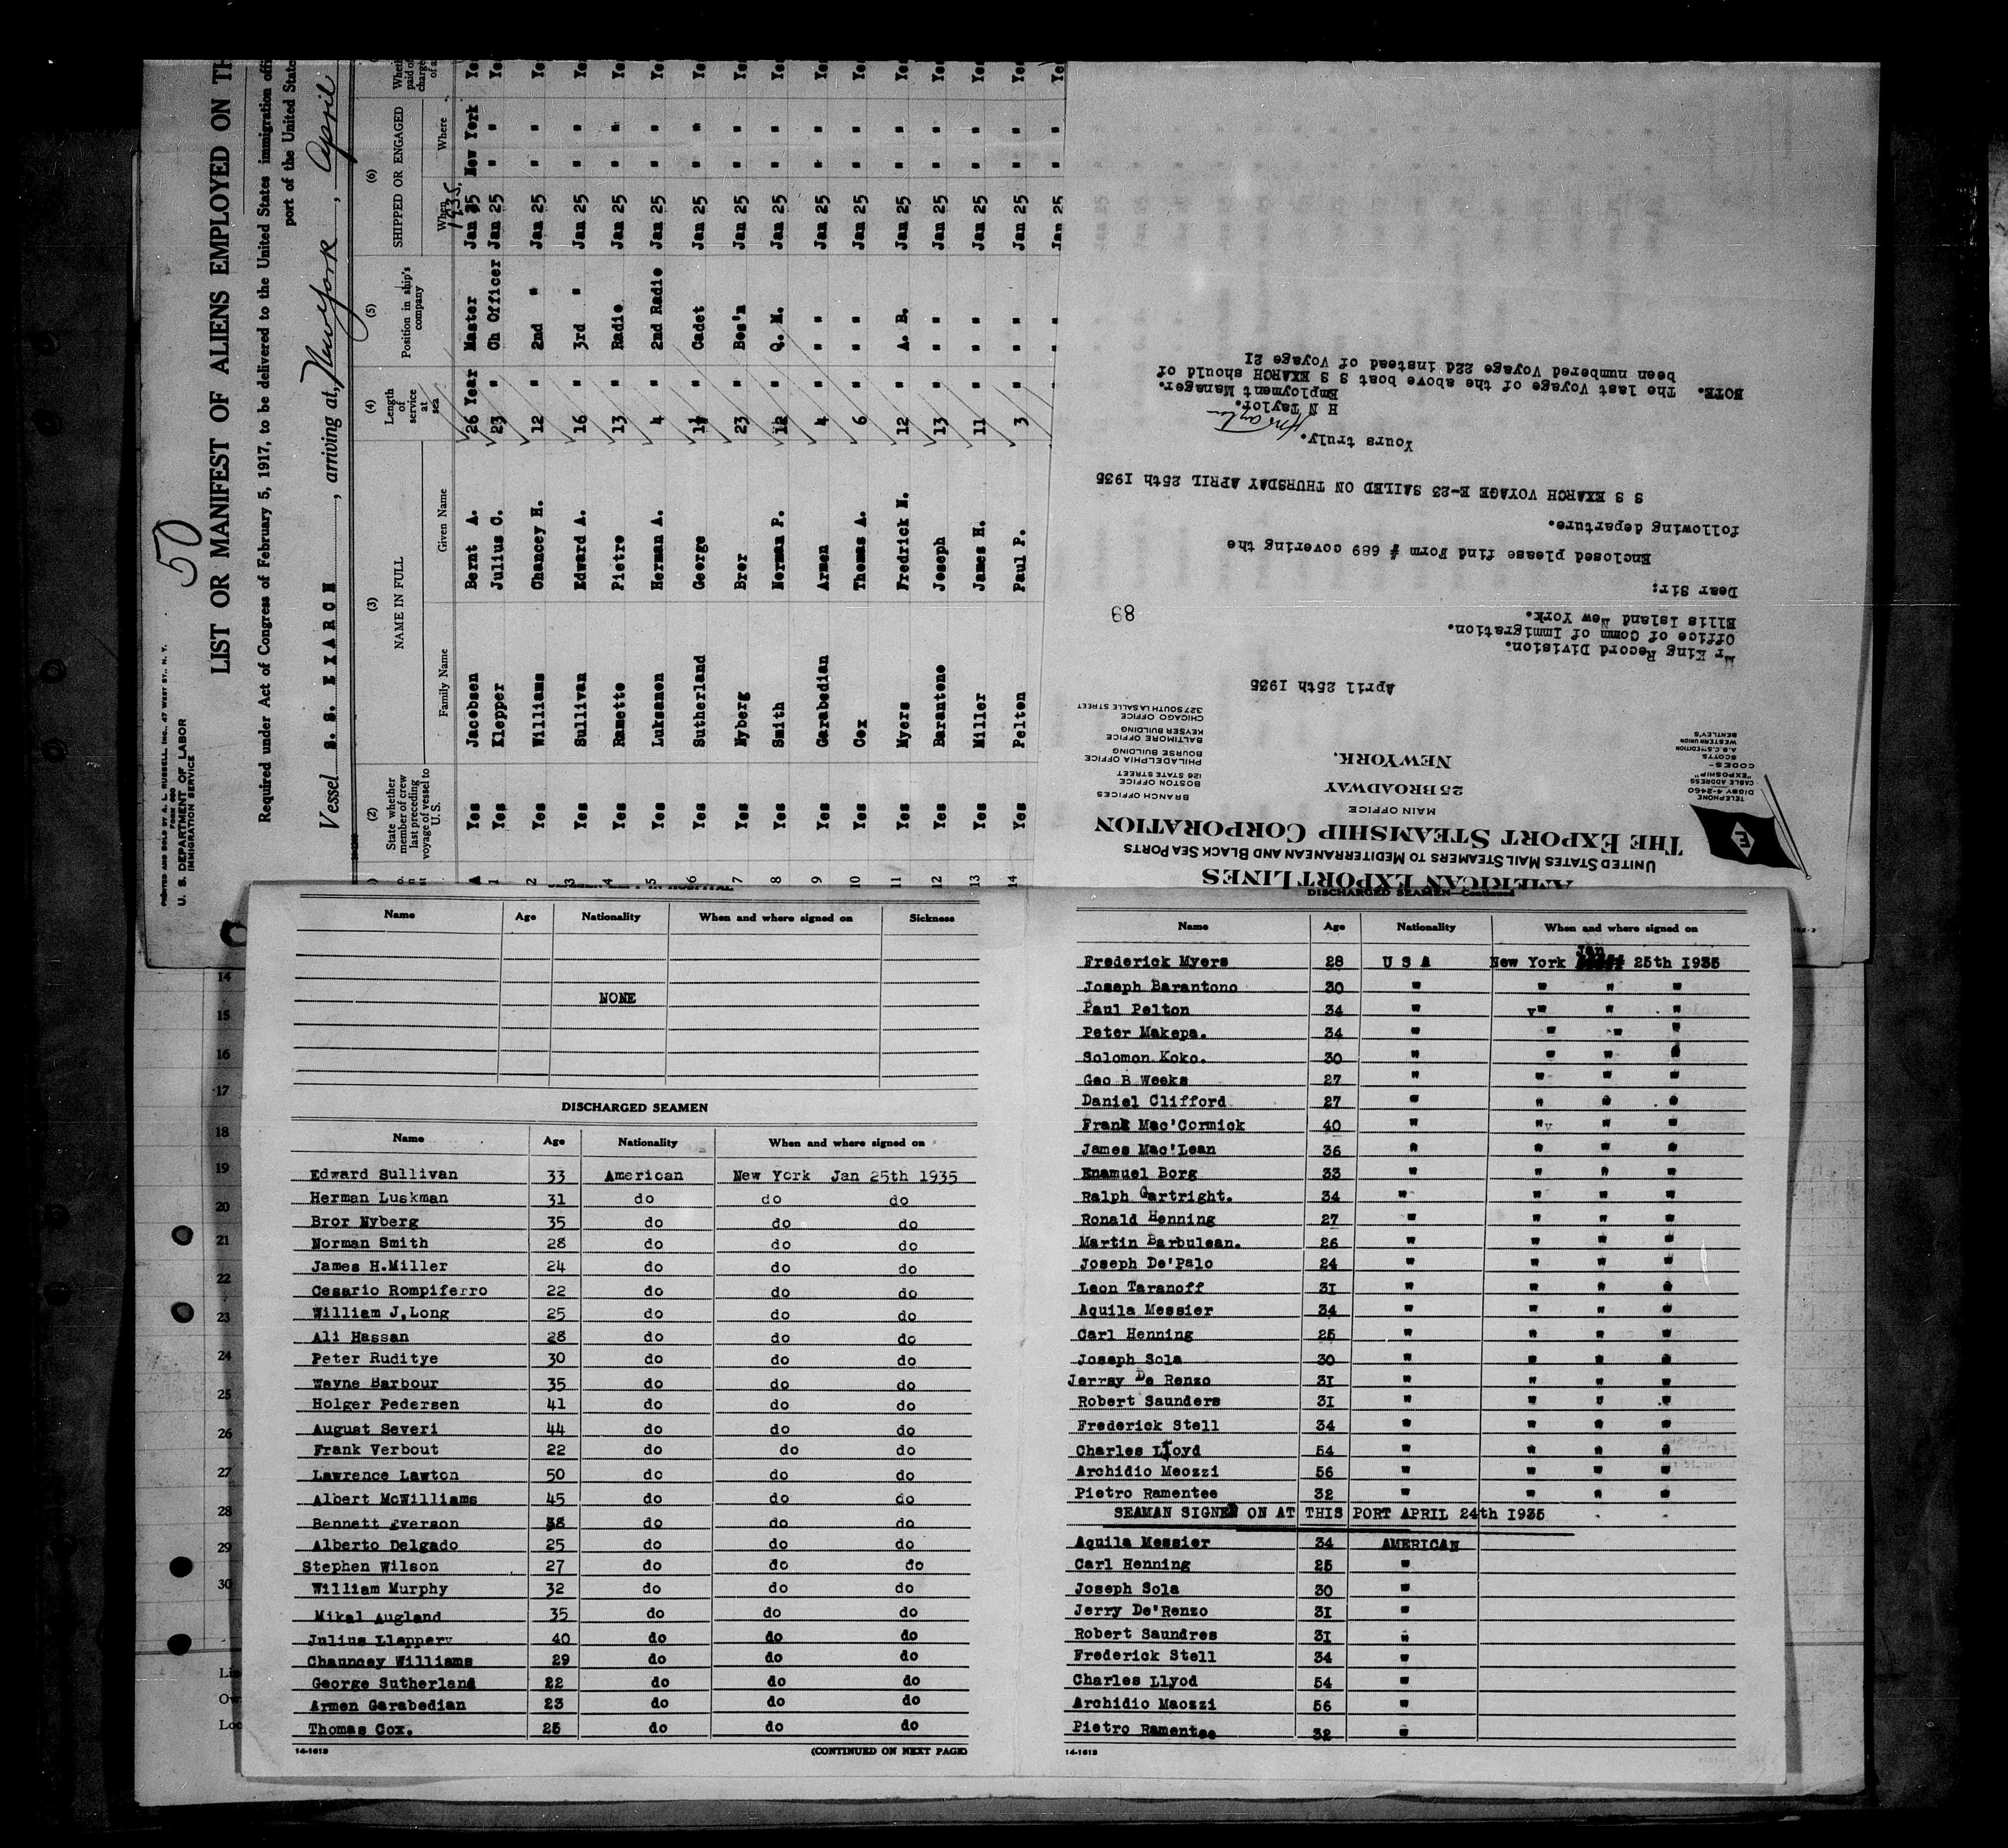 50
PRINTED AND SOLD BY A. L. RUSSELL, INC., 47 WEST ST., N. Y.
FORM 680
U. S. DEPARTMENT OF LABOR
IMMIGRATION SERVICE
LIST OR MANIFEST OF ALIENS EMPLOYED ON TH
Required under Act of Congress of February 5, 1917, to be delivered to the United States immigration offi
port of the United State
Vessel S. S. EXARCH, arriving at, New York, April
(2) (3) (4) (5) (6)
State whether member of crew last preceding voyage of vessel to U. S. NAME IN FULL Length of service at sea Position in ship's company SHIPPED OR ENGAGED
Family Name Given Name When Where
1935.
Yes Jacobsen Bernt A. 26 Year Master Jan 25 New York Yes
1 Yes Klepper Julius C. 23 " Ch Officer Jan 25 " " Yes
2 Yes Williams Chancey H. 12 " 2nd " Jan 25 " " Yes
3 Yes Sullivan Edward A. 16 " 3rd " Jan 25 " " Yes
4 Yes Ramette Pietro 13 " Radio Jan 25 " " Yes
5 Yes Luksanen Herman A. 4 " 2nd Radio Jan 25 " " Yes
6 Yes Sutherland George " Cadet Jan 25 " " Yes
7 Yes Nyberg Bror 23 " Bos'n Jan 25 " " Yes
8 Yes Smith Norman P. 12 " Q. M. Jan 25 " " Yes
9 Yes Garabedian Armen 4 " " Jan 25 " " Yes
10 Yes Cox Thomas A. 6 " " Jan 25 " " Yes
11 Yes Myers Fredrick N. 12 " A. B. Jan 25 " " Yes
12 Yes Barantono Joseph 13 " " Jan 25 " " Yes
13 Yes Miller James H. 11 " " Jan 25 " " Yes
14 Yes Pelton Paul P. 3 " " Jan 25 " " Yes
" Jan 25 " " Yes
AMERICAN EXPORT LINES
UNITED STATES MAIL STEAMERS TO MEDITERRANEAN AND BLACK SEA PORTS
THE EXPORT STEAMSHIP CORPORATION
MAIN OFFICE
25 BROADWAY
NEW YORK.
TELEPHONE
DIGBY 4-2460
CABLE ADDRESS
"EXPOSHIP"
-CODES-
SCOTTS
A.B.C. 5TH EDITION
WESTERN UNION
BENTLEY'S
BRANCH OFFICES
BOSTON OFFICE
126 STATE STREET
PHILADELPHIA OFFICE
BOURSE BUILDING
BALTIMORE OFFICE
KEYSER BUILDING
CHICAGO OFFICE
327 SOUTH LA SALLE STREET
April 25th 1935
Mr King Record Division.
Office of Comm of Immigration.
Ellis Island New York.
89
Dear Sir:
Enclosed please find Form # 689 covering the
following departure.
S S EXARCH VOYAGE E-23 SAILED ON THURSDAY APRIL 25th 1935
Yours truly.
H N Taylor.
Employment Manager.
NOTE. The last Voyage of the above boat S S EXARCH should of
been numbered Voyage 22d instead of Voyage 21
14
15
16
17
18
19
20
21
22
23
24
25
26
27
28
29
30
Name Age Nationality When and where signed on Sickness
NONE
DISCHARGED SEAMEN
Name Age Nationality When and where signed on
Edward Sullivan 33 American New York Jan 25th 1935
Herman Luskman 31 do do do
Bror Nyberg 35 do do do
Norman Smith 28 do do do
James H.Miller 24 do do do
Cesario Rompiferro 22 do do do
William J,Long 25 do do do
Ali Hassan 28 do do do
Peter Ruditye 30 do do do
Wayne Barbour 35 do do do
Holger Pedersen 41 do do do
August Severi 44 do do do
Frank Verbout 22 do do do
Lawrence Lawton 50 do do do
Albert McWilliams 45 do do do
Bennett Iverson 38 do do do
Alberto Delgado 25 do do do
Stephen Wilson 27 do do do
William Murphy 32 do do do
Mikal Augland 35 do do do
Julius Llappery 40 do do do
Chauncey Williams 29 do do do
George Sutherland 22 do do do
Armen Garabedian 23 do do do
Thomas Cox. 25 do do do
14-1613 (CONTINUED ON NEXT PAGE)
DISCHARGED SEAMEN—Continued
Name Age Nationality When and where signed on
Frederick Myers 28 U S A New York Jan 25th 1935
Joseph Barantono 30 " " " "
Paul Pelton 34 " " " "
Peter Makepa. 34 " " " "
Solomon Koko. 30 " " " "
Geo B Weeks 27 " " " "
Daniel Clifford 27 " " " "
Frank Mac'Cormick 40 " " " "
James Mac'Lean 36 " " " "
Enamuel Borg 33 " " " "
Ralph Gartright. 34 " " " "
Ronald Henning 27 " " " "
Martin Barbulean. 26 " " " "
Joseph De'Palo 24 " " " "
Leon Taranoff 31 " " " "
Aquila Messier 34 " " " "
Carl Henning 25 " " " "
Joseph Sola 30 " " " "
Jerray De Renzo 31 " " " "
Robert Saunders 31 " " " "
Frederick Stell 34 " " " "
Charles Lloyd 54 " " " "
Archidio Meozzi 56 " " " "
Pietro Ramentee 32 " " " "
SEAMAN SIGNED ON AT THIS PORT APRIL 24th 1935
Aquila Messier 34 AMERICAN
Carl Henning 25 "
Joseph Sola 30 "
Jerry De'Renzo 31 "
Robert Saundres 31 "
Frederick Stell 34 "
Charles Llyod 54 "
Archidio Maozzi 56 "
Pietro Ramentee 32 "
14-1613